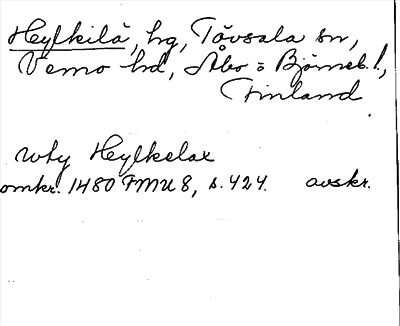 Heylkilä, hg, Tövsala sn,
Vemo hd, Åbo o Björneb. l.,
Finland
Wty Heylkelax
omkr. 1480 FMU 8, s. 424. avskr.